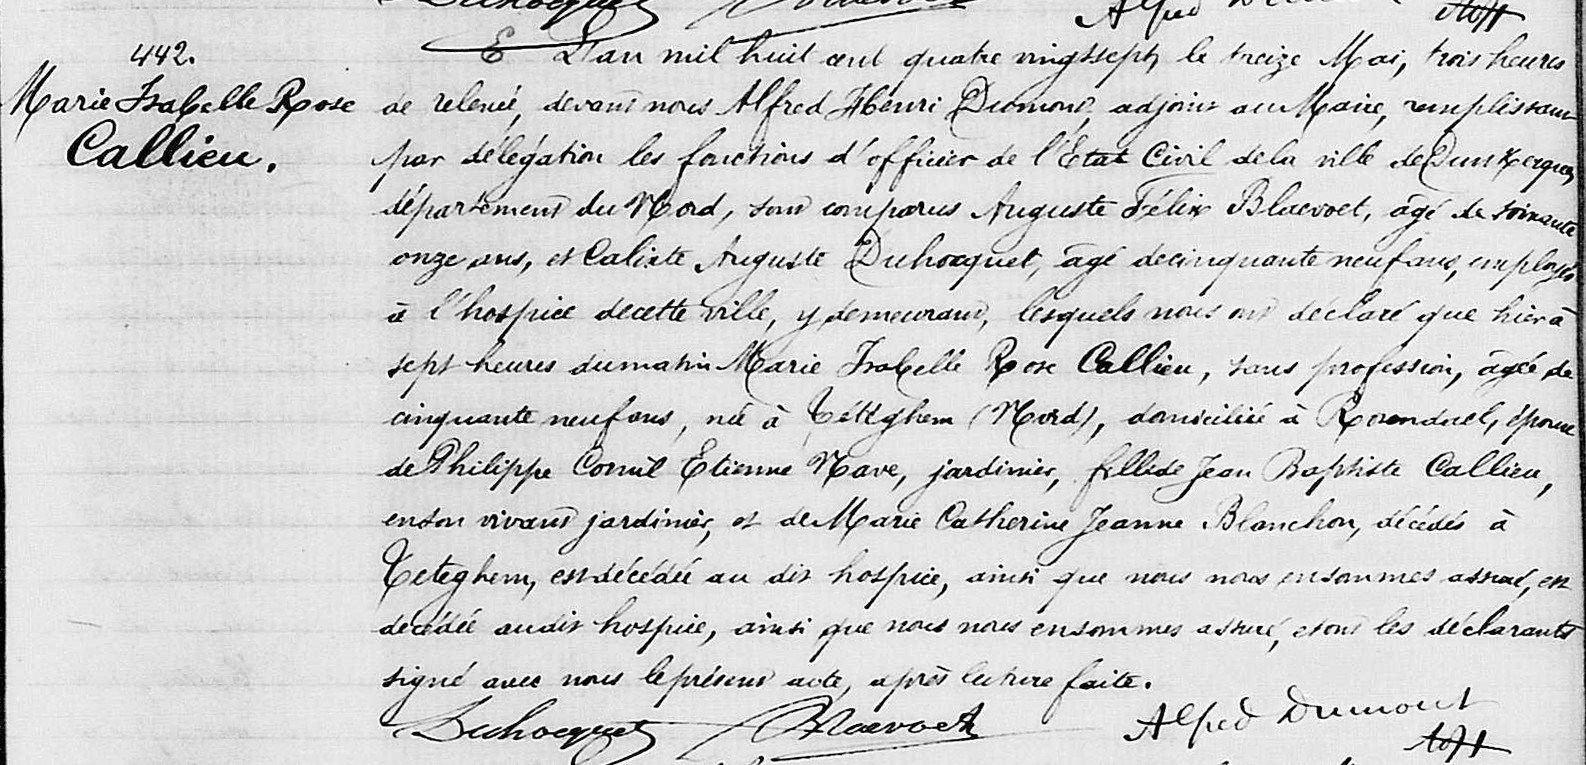 Duhocquet
Alfred
442.
Marie Isabelle Rose
Callieu.
L'an mil huit cent quatre vingt sept, le treize Mai, trois heures
de relevée, devant nous Alfred Henri Dumont, adjoint au Maire, remplissant
par délégation les fonctions d'officier de l'Etat Civil de la ville de Dunkerque,
département du Nord, sont comparus Auguste Félix Blaevoet, âgé de soixante
onze ans, et Calixte Auguste Duhocquet, âgé de cinquante neuf ans, employés
à l'hospice de cette ville, y demeurant, lesquels nous ont déclaré que hier à
sept heures du matin Marie Isabelle Rose Callieu, sans profession, âgée de
cinquante neuf ans, née à Téteghem (Nord), domiciliée à Rosendael, épouse
de Philippe Cornil Etienne Nave, jardinier, fille de Jean Baptiste Callieu,
en son vivant jardinier, et de Marie Catherine Jeanne Blanchon, décédés à
Téteghem, est décédée au dit hospice, ainsi que nous nous en sommes assuré, est
décédée au dit hospice, ainsi que nous nous en sommes assuré, et ont les déclarants
signé avec nous le présent acte, après lecture faite.
Duhocquet Blaevoet Alfred Dumont